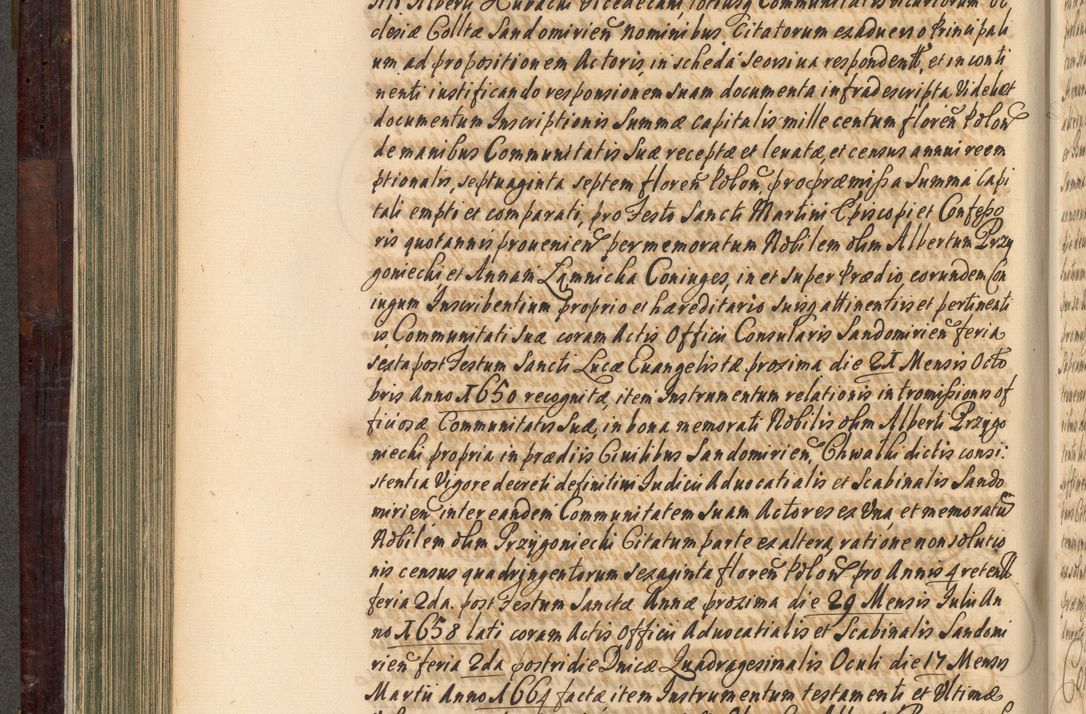 sito Alberti Hubachi Vicedecani, totiusq Communitatis Vicariorum Ec
clesiæ Colltæ Sandomirien̄ nominibus Citatorum exaduerso Principali
um ad propositionem Actoris, in scheda seorsiua respondentt, et in conti
nenti iustificando responsionem suam documenta infradescripta, Videlicet
documentum Inscriptionis Summæ capitalis mille centum floren̄ Polon̄
de manibus Communitatis Suæ receptæ et leuatæ, et census annui reem
ptionalis, septuaginta septem floren̄ Polon̄, pro præmissa Summa Capi
tali empti et comparati, pro Festo Sancti Martini Episcopi et Confesso
ris quotannis prouenien̄, per memoratum Nobilem olim Albertum Przy
goniecki et Annam Lamnicka Coniuges, in et super Prædio eorundem Con
iugum Inscribentium proprio et hæreditario suisq attinentiis et pertinenti
is Communitati Suæ coram Actis Officii Consularis Sandomirien̄ feria
sexta post Festum Sancti Lucæ Euangelistæ proxima die 21 Mensis Octo
bris Anno 1650 recognitæ, item Instrumentum relationis intromissionis of
ficiosæ Communitatis Suæ, in bona memorati Nobilis olim Alberti Przygo
niecki propria in prædiis Ciuilibus Sandomirien̄, Chwałki dictis consi:
stentia Vigore decreti definitiui Iudicii Aduocatialis et Scabinalis Sando
mirien̄ inter eandem Communitatem Suam Actores ex Vna, et memoratū
Nobilem olim Przygoniecki Citatum parte ex altera, ratione non solutio
nis census quadringentorum sexaginta floren̄ Polon̄ pro Annis 4 retentt
feria 2da. post Festum Sanctæ Annæ proxima die 29 Mensis Iulii An
no 1658 lati coram Actis Officii Aduocatialis et Scabinalis Sandomi
rien̄ feria 2da postridie Dnicæ Quadragesimalis Oculi die 17 Mensis
Martii Anno 1664 factæ item Instrumentum testamenti et Vltimæ